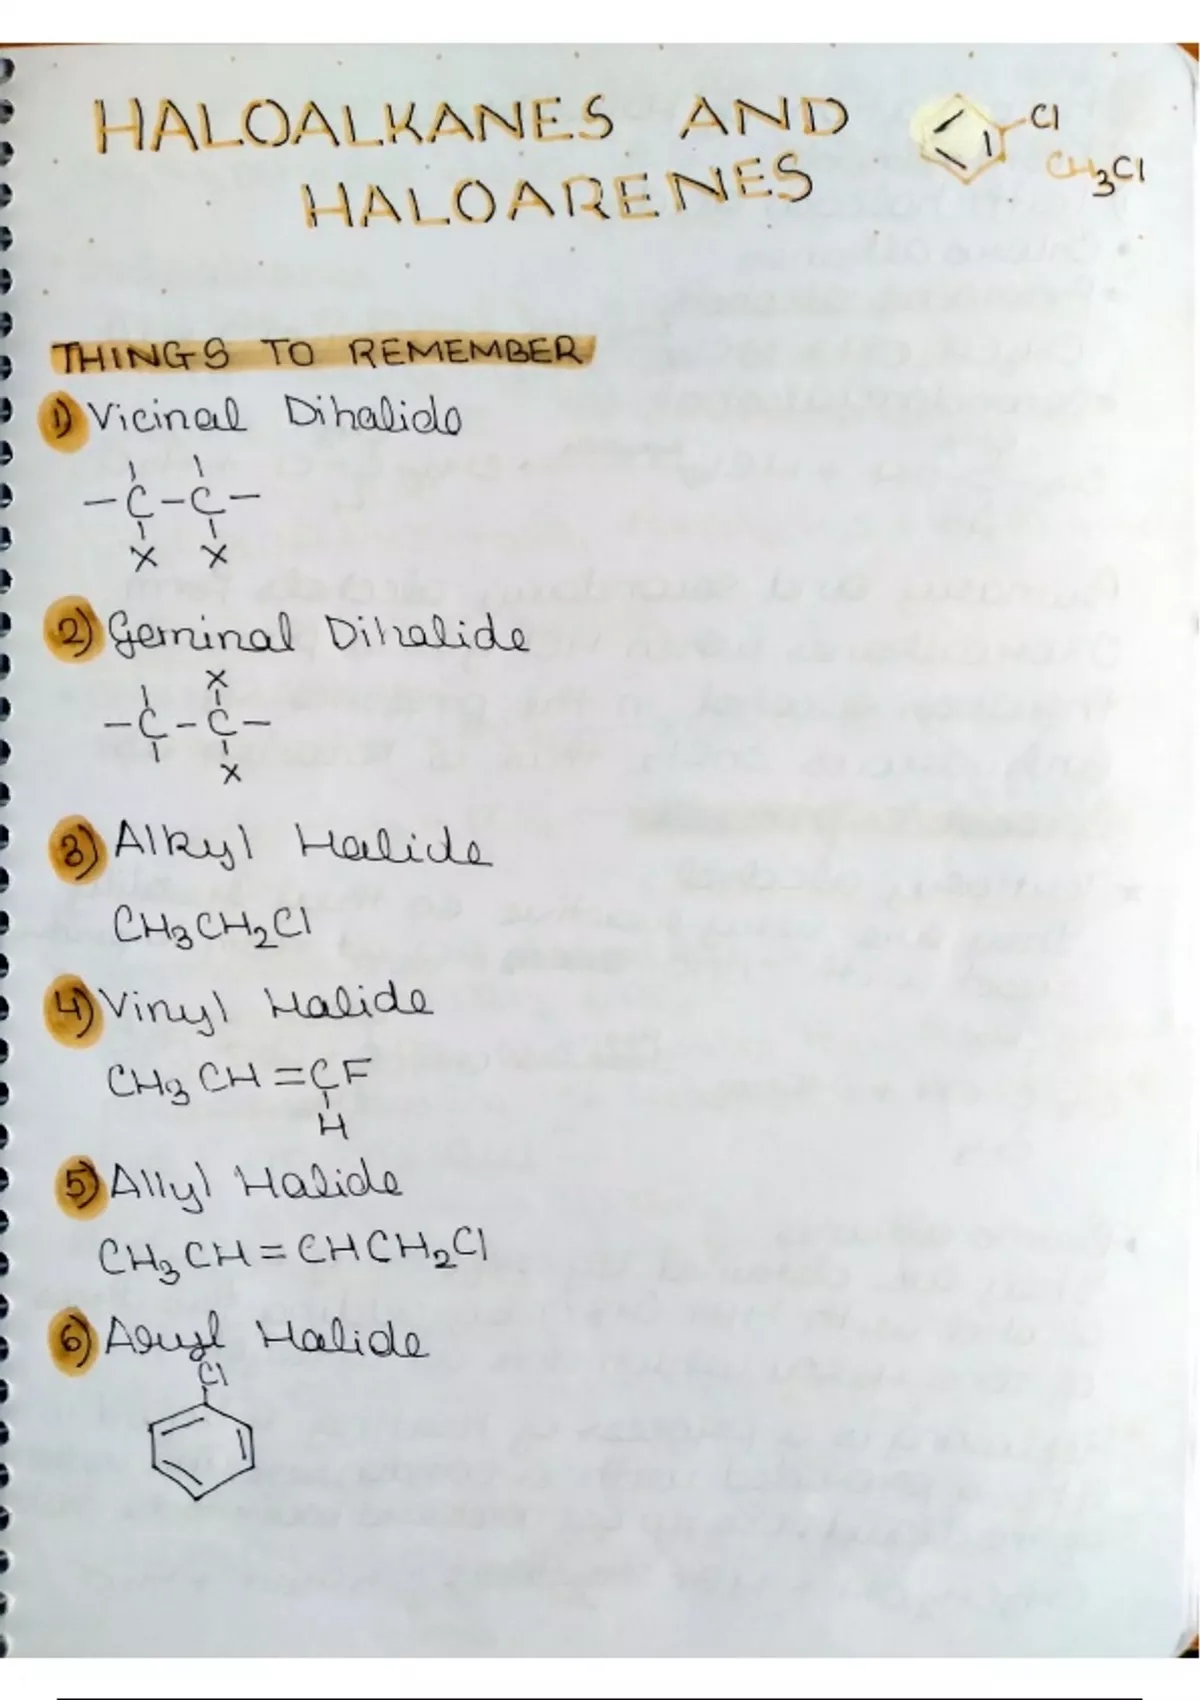 HALOALKANES AND
HALOARENES
Cl
CH₃Cl
THINGS TO REMEMBER
1) Vicinal Dihalide
-C-C-
X X
2) Geminal Dihalide
X
-C-C-
X
3) Alkyl Halide
CH₃CH₂Cl
4) Vinyl Halide
CH₃CH=CF
H
5) Allyl Halide
CH₃CH=CHCH₂Cl
6) Aryl Halide
Cl